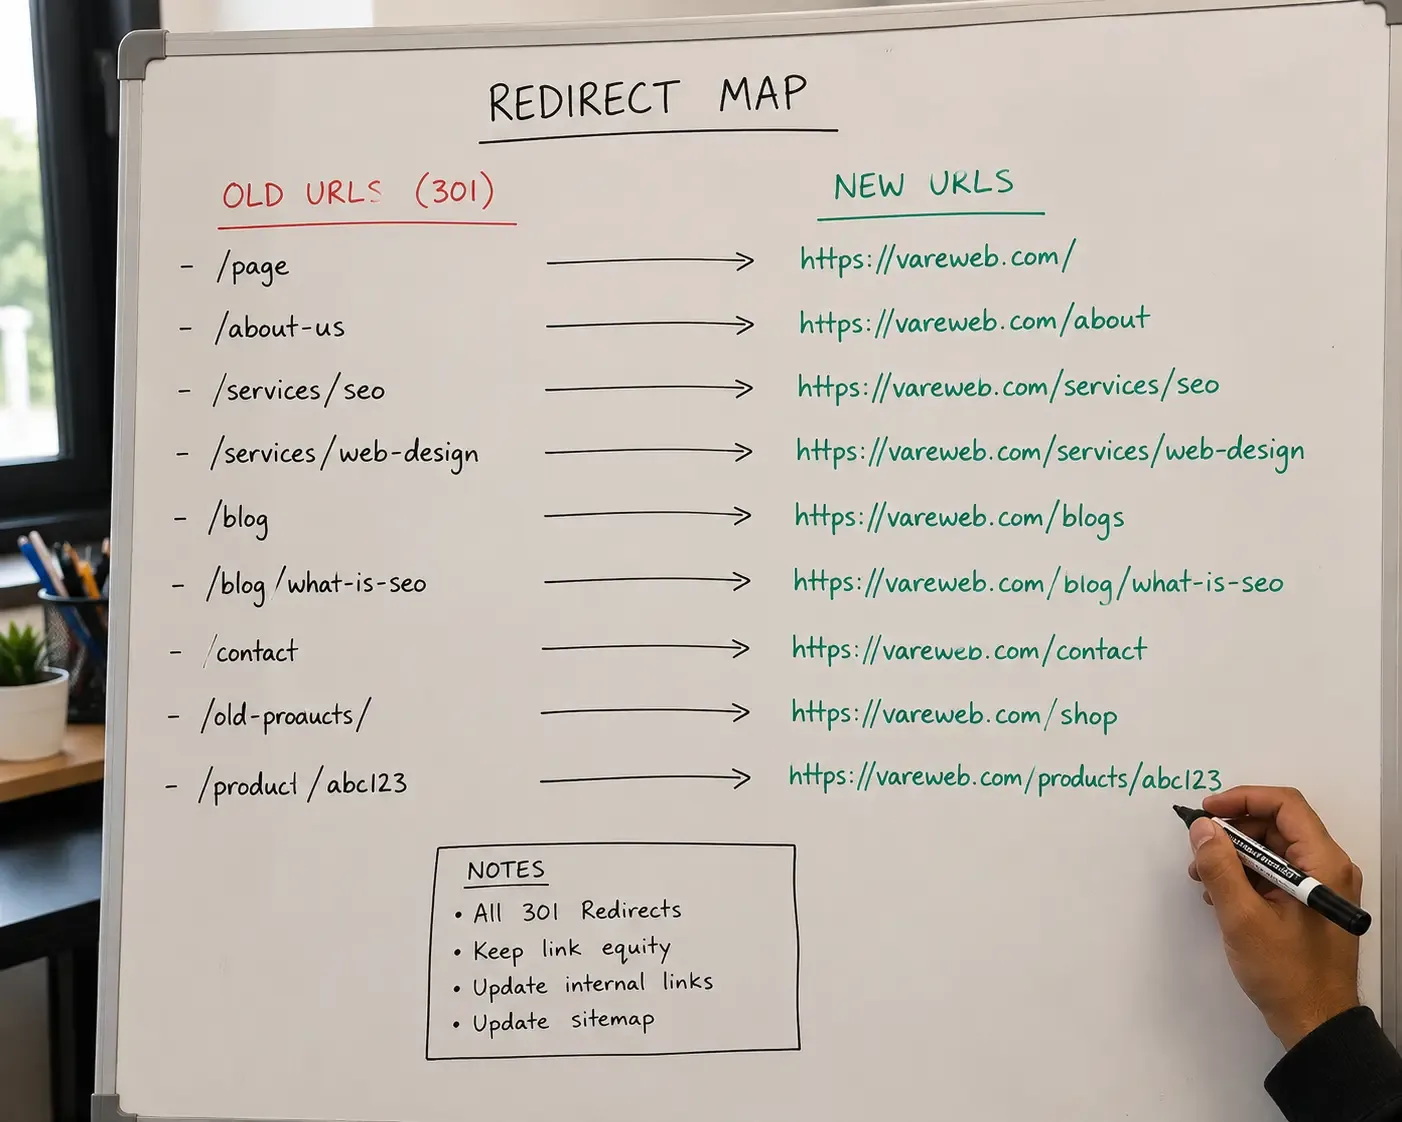 REDIRECT MAP
OLD URLS (301)
NEW URLS
- /page → https://vareweb.com/
- /about-us → https://vareweb.com/about
- /services/seo → https://vareweb.com/services/seo
- /services/web-design → https://vareweb.com/services/web-design
- /blog → https://vareweb.com/blogs
- /blog/what-is-seo → https://vareweb.com/blog/what-is-seo
- /contact → https://vareweb.com/contact
- /old-proaucts/ → https://vareweb.com/shop
- /product/abc123 → https://vareweb.com/products/abc123
NOTES
• All 301 Redirects
• Keep link equity
• Update internal links
• Update sitemap